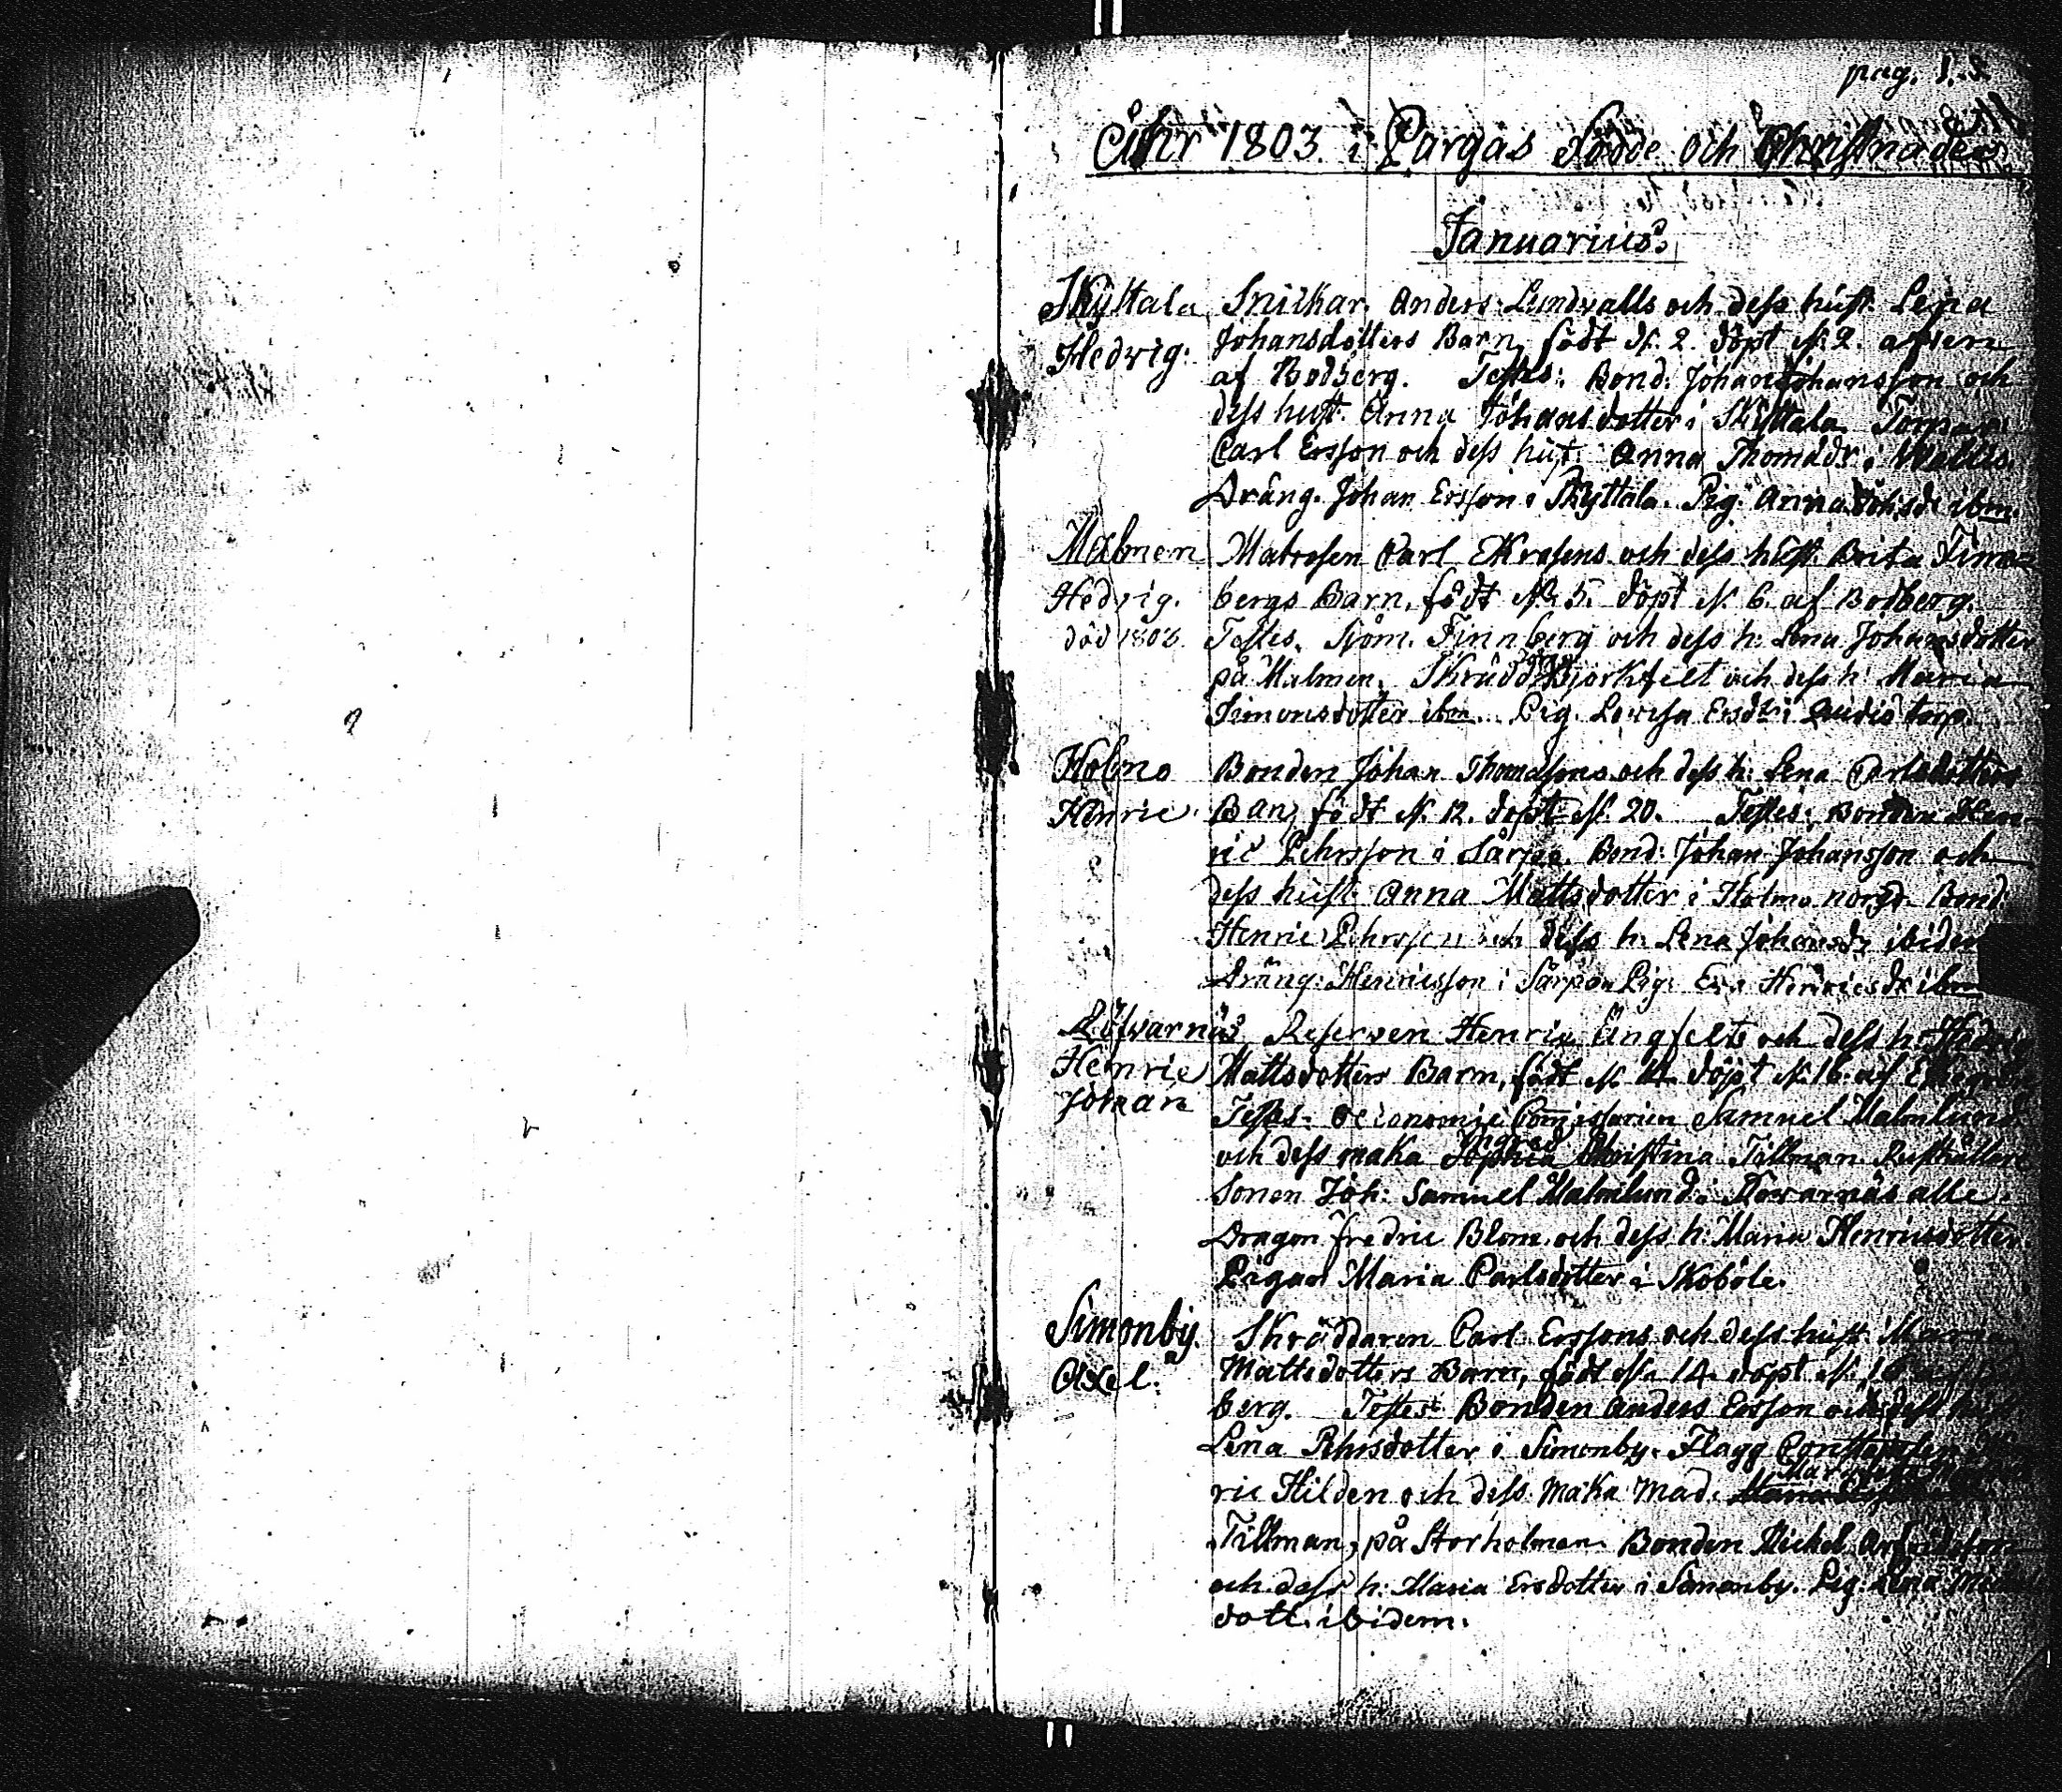 pag. 1.
Åhr 1803. i Pargas Födde och Christnade
Januarius.
Skyttala Snickar. Anders Lundvalls och dess hust. Lena
Hedvig. Johansdotters Barn, födt d. 2. döpt d. 9.
af Bodberg. Testes: Bond. Johan Johansson och
dess hust. Anna Johansdotter i Skyttala. Torpar.
Carl Ersson och dess hust. Anna Thomadr. i
Dräng. Johan Ersson i Skyttala. Pig. Anna Johsdr ibm.
Malmen Matrosen Carl och dess hust. Brita Finn-
Hedvig. bergs Barn, födt d. 5. döpt d. 6. af Bodberg.
död 1803. Testes. Finnberg och dess h: Lena Johansdotter
på Malmen. Skrädd. Björkfelt och dess h: Maria
Simonsdotter ibm. Pig. Lovisa Ersdr i torp.
Holmo Bonden Johan Thomassons och dess h: Lena Carlsdotters
Henric. Barn, födt d. 12. döpt d. 20. Testes: Bonden Hen-
ric Pehrsson i Sårpo. Bond: Johan Johansson och
dess hust. Anna Mattsdotter i Holmo norgd. Bond
Henric Pehrsson och dess h: Lena Johansdr ibidem
Dräng: Henricsson i Sårpo Pig: Eva Henricsdr ibm
Röfvarnäs Reserven Henric Ängfelts och dess h: Hedvig
Henric Mattsdotters Barn, födt d. 14. döpt d. 16. af
Johan Testes: Oeconomie Commissarien Samuel Malmlund
och dess maka Ingred Christina Tillman Rusthållare
sonen Joh: Samuel Malmlund i Röwarnäs alle.
Dragon fredric Blom och dess h: Maria Henricsdotter.
Pigan Maria Carlsdotter i Skoböle.
Simonby. Skräddaren Carl Erssons och dess hust. Maria
Axel. Mattsdotters Barn, födt d. 14. döpt d.
berg. Testes: Bonden Anders Ersson och dess hust
Lena Pehrsdotter i Simonby. Flagg
ric Hilden och dess maka Mad.
Tillman, på Storholmen. Bonden Mickel Arfvidsson
och dess h: Maria Ersdotter i Simonby. Pig: Lena
dott. ibidem.